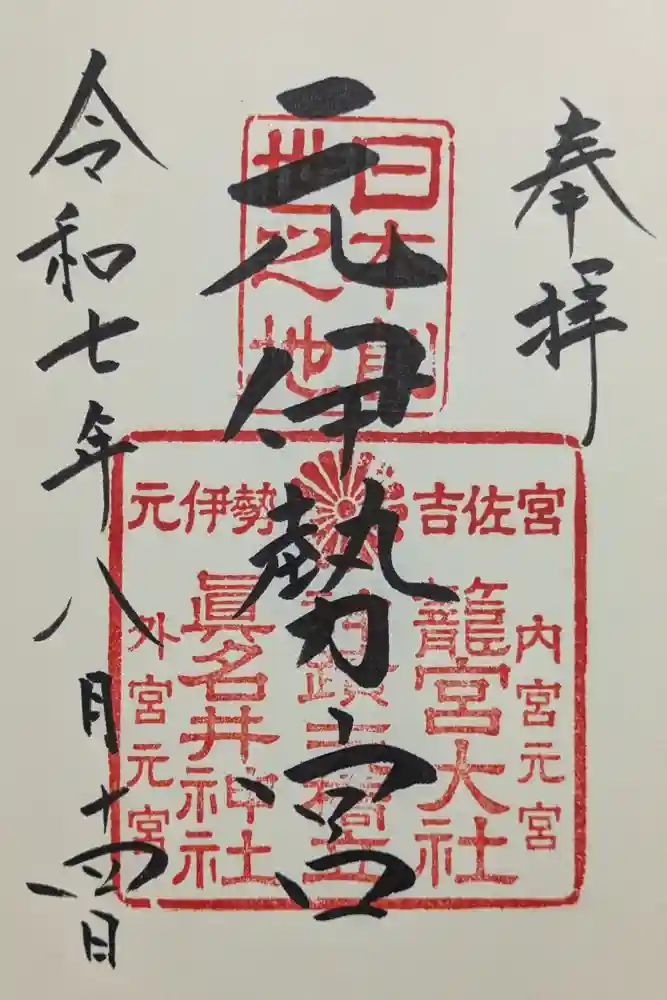 奉拝
日本創
世之地
元伊勢宮
吉佐宮
元伊勢
内宮元宮
籠宮大社
眞名井神社
外宮元宮
令和七年八月十四日